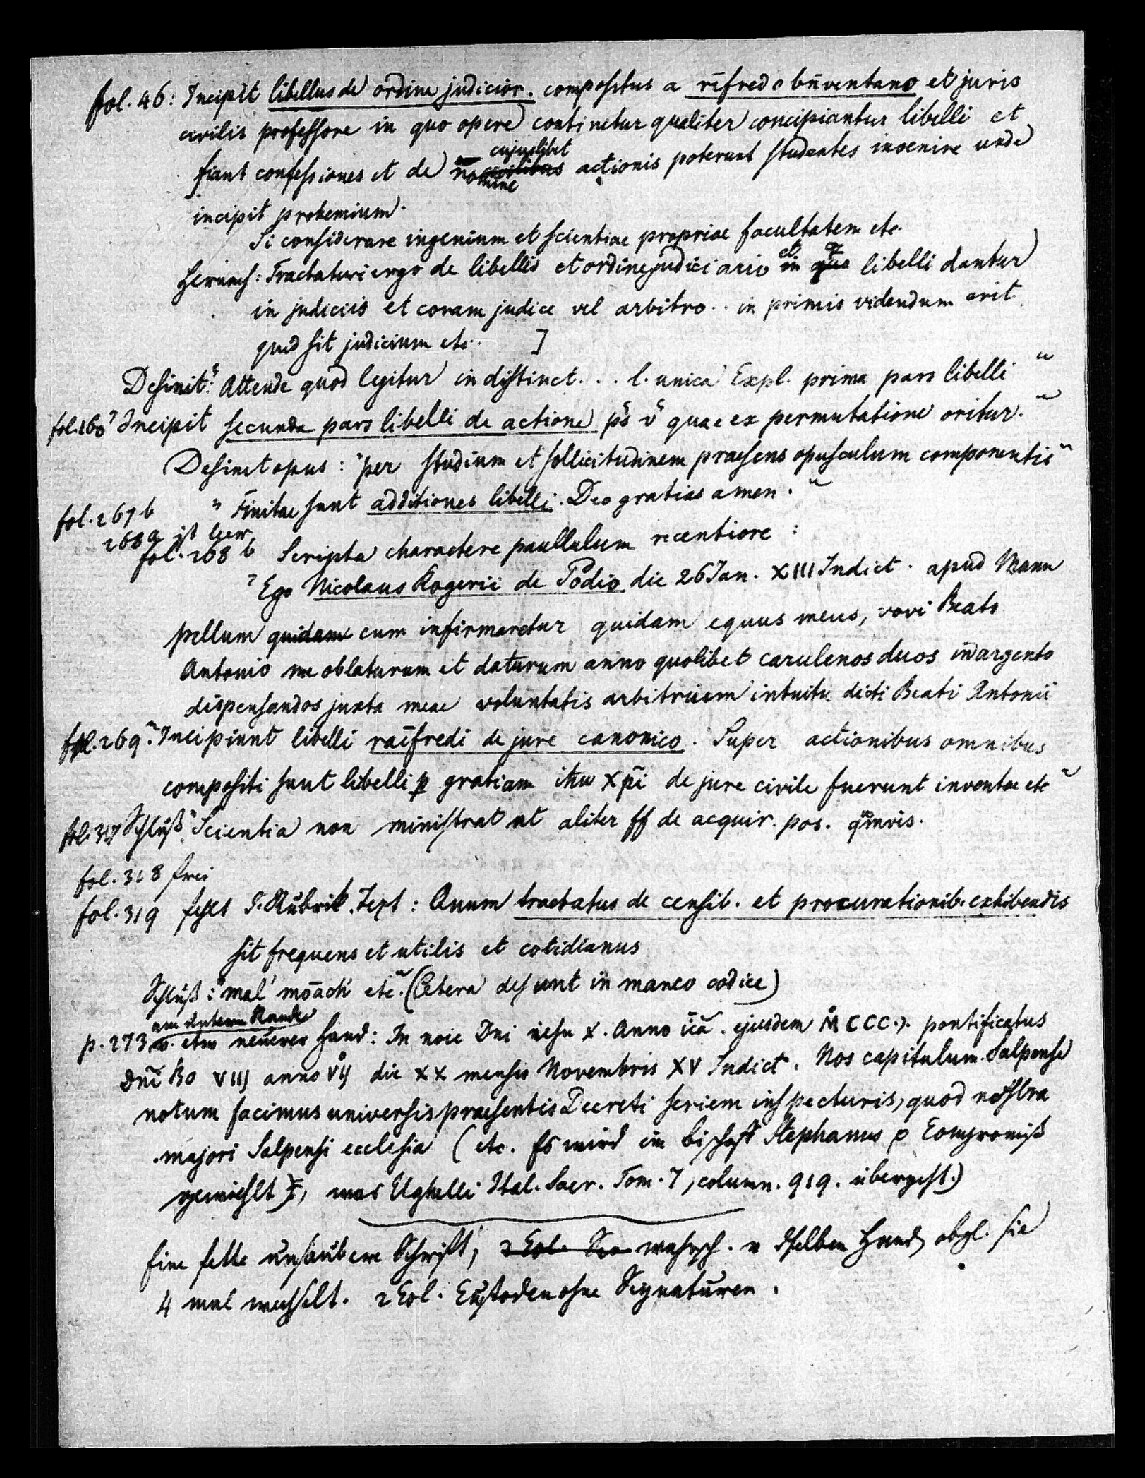 fol. 46: Incipit libellus de ordine judicior. compositus a rifredo bn̄ventano et juris
civilis professore in quo opere continetur qualiter concipiantur libelli et
fiant confessiones et de nomine cujuslibet actionis poterunt studentes invenire unde
incipit prohemium.
Si considerare ingenium et scientiae propriae facultatem etc
Hernach: Tractaturi ergo de libellis et ordine judiciario et libelli dantur
in judiciis et coram judice vel arbitro .. in primis videndum erit
quid sit judicium etc. ]
Desinit: "Attende quod legitur in distinct. . . l. unica Expl. prima pars libelli"
fol. 160 "Incipit secunda pars libelli de actione quae ex permutatione oritur."
Desinet opus: "per studium et sollicitudinem praesens opusculum componentis"
fol. 267 b "Finitae sunt additiones libelli. Deo gratias amen."
268 a ist leer
fol. 268 b Scripta charactere paullulum recentiore :
"Ego Nicolaus Rogerii de Podio die 26 Jan. XIII Indict. apud Mann
pellum quidam cum infirmaretur quidam equus meus, vovi Beato
Antonio me oblaturum et daturum anno quolibet carulenos duos in argento
dispensandos juxta meae voluntatis arbitrium intuitu dicti Beati Antonii
fol. 269. "Incipiunt libelli raifredi de jure canonico. Super actionibus omnibus
compositi sunt libelli p gratiam ihu xp̄i de jure civile fuerunt inventae etc"
fol. 317 Schluß "Scientia non ministrat ut aliter ff de acquir. pos. qmvis.
fol. 318 frei
fol. 319 fehlt d. Rubrik. Text: Quum tractatus de censib. et procurationib. exhibendis
sit frequens et utilis et cotidianus
Schluß: "mal' mōach etc." (Cetera desunt in manco codice)
p. 273 am untern Rande v. etw neuerer Hand: In noie Dni iesu X. Anno ejusdem M CCC. pontificatus
Dnī Bo VIIJ anno VIJ die XX mensis Novembris XV Indict. Nos capitulum Salpense
notum facimus universis praesentis Decreti seriem inspecturis, quod nostra
majori Salpensi ecclesia (etc. Es wird ein Bischoff Stephanus p Compromiß
gewehlt, was Ughelli Ital. Sacr. Tom. 7, column. 919. übergeht.)
Eine fette unsaubere Schrift, 2 Col. wahrsch. v dselben Hand, obgl. sie
4 mal wechselt. 2 Col. Custoden ohne Signaturen.